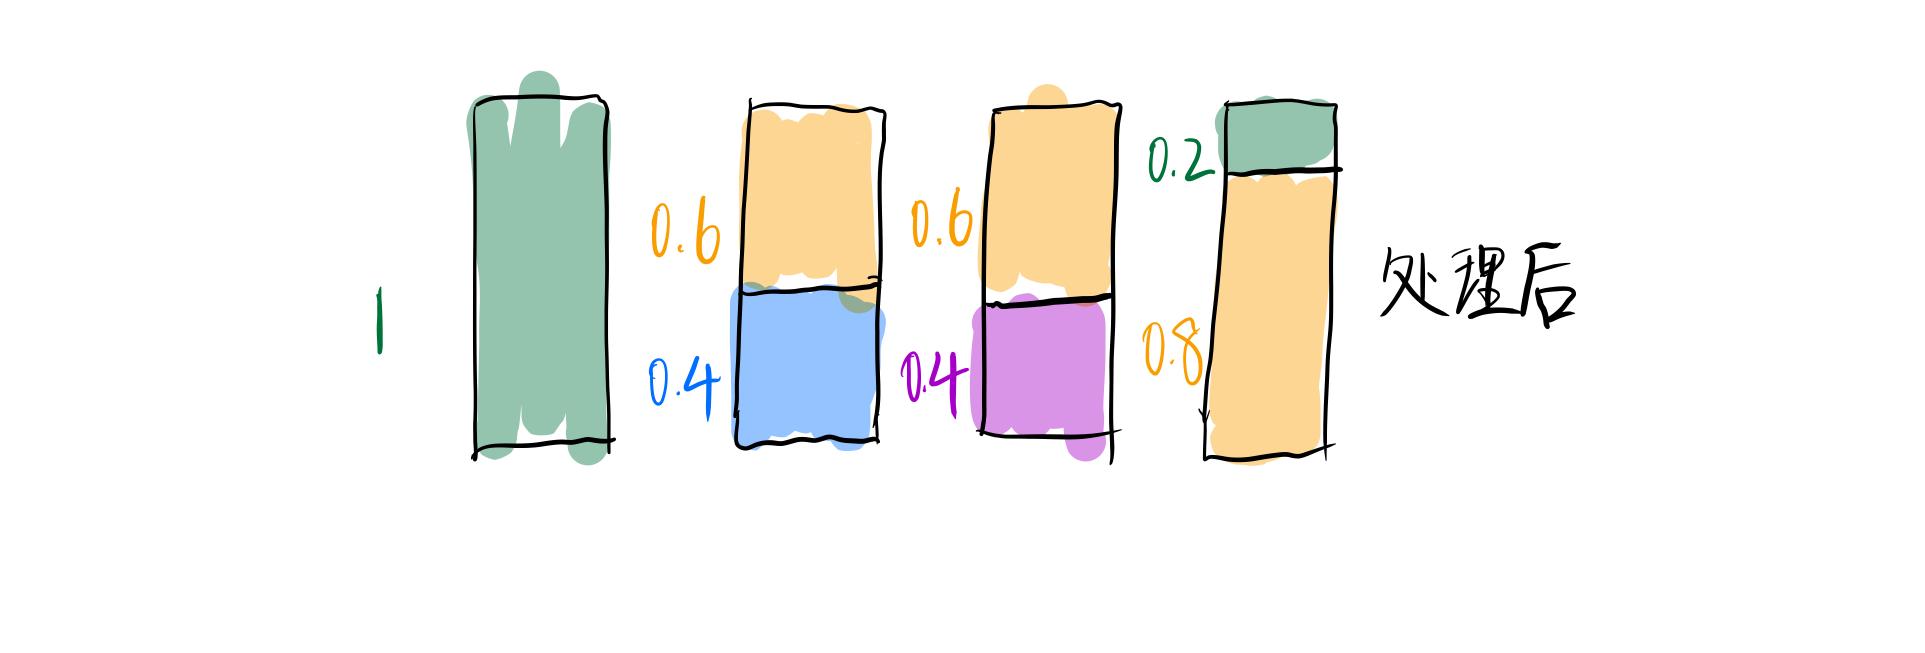 1
0.6
0.4
0.6
0.4
0.2
0.8
处理后